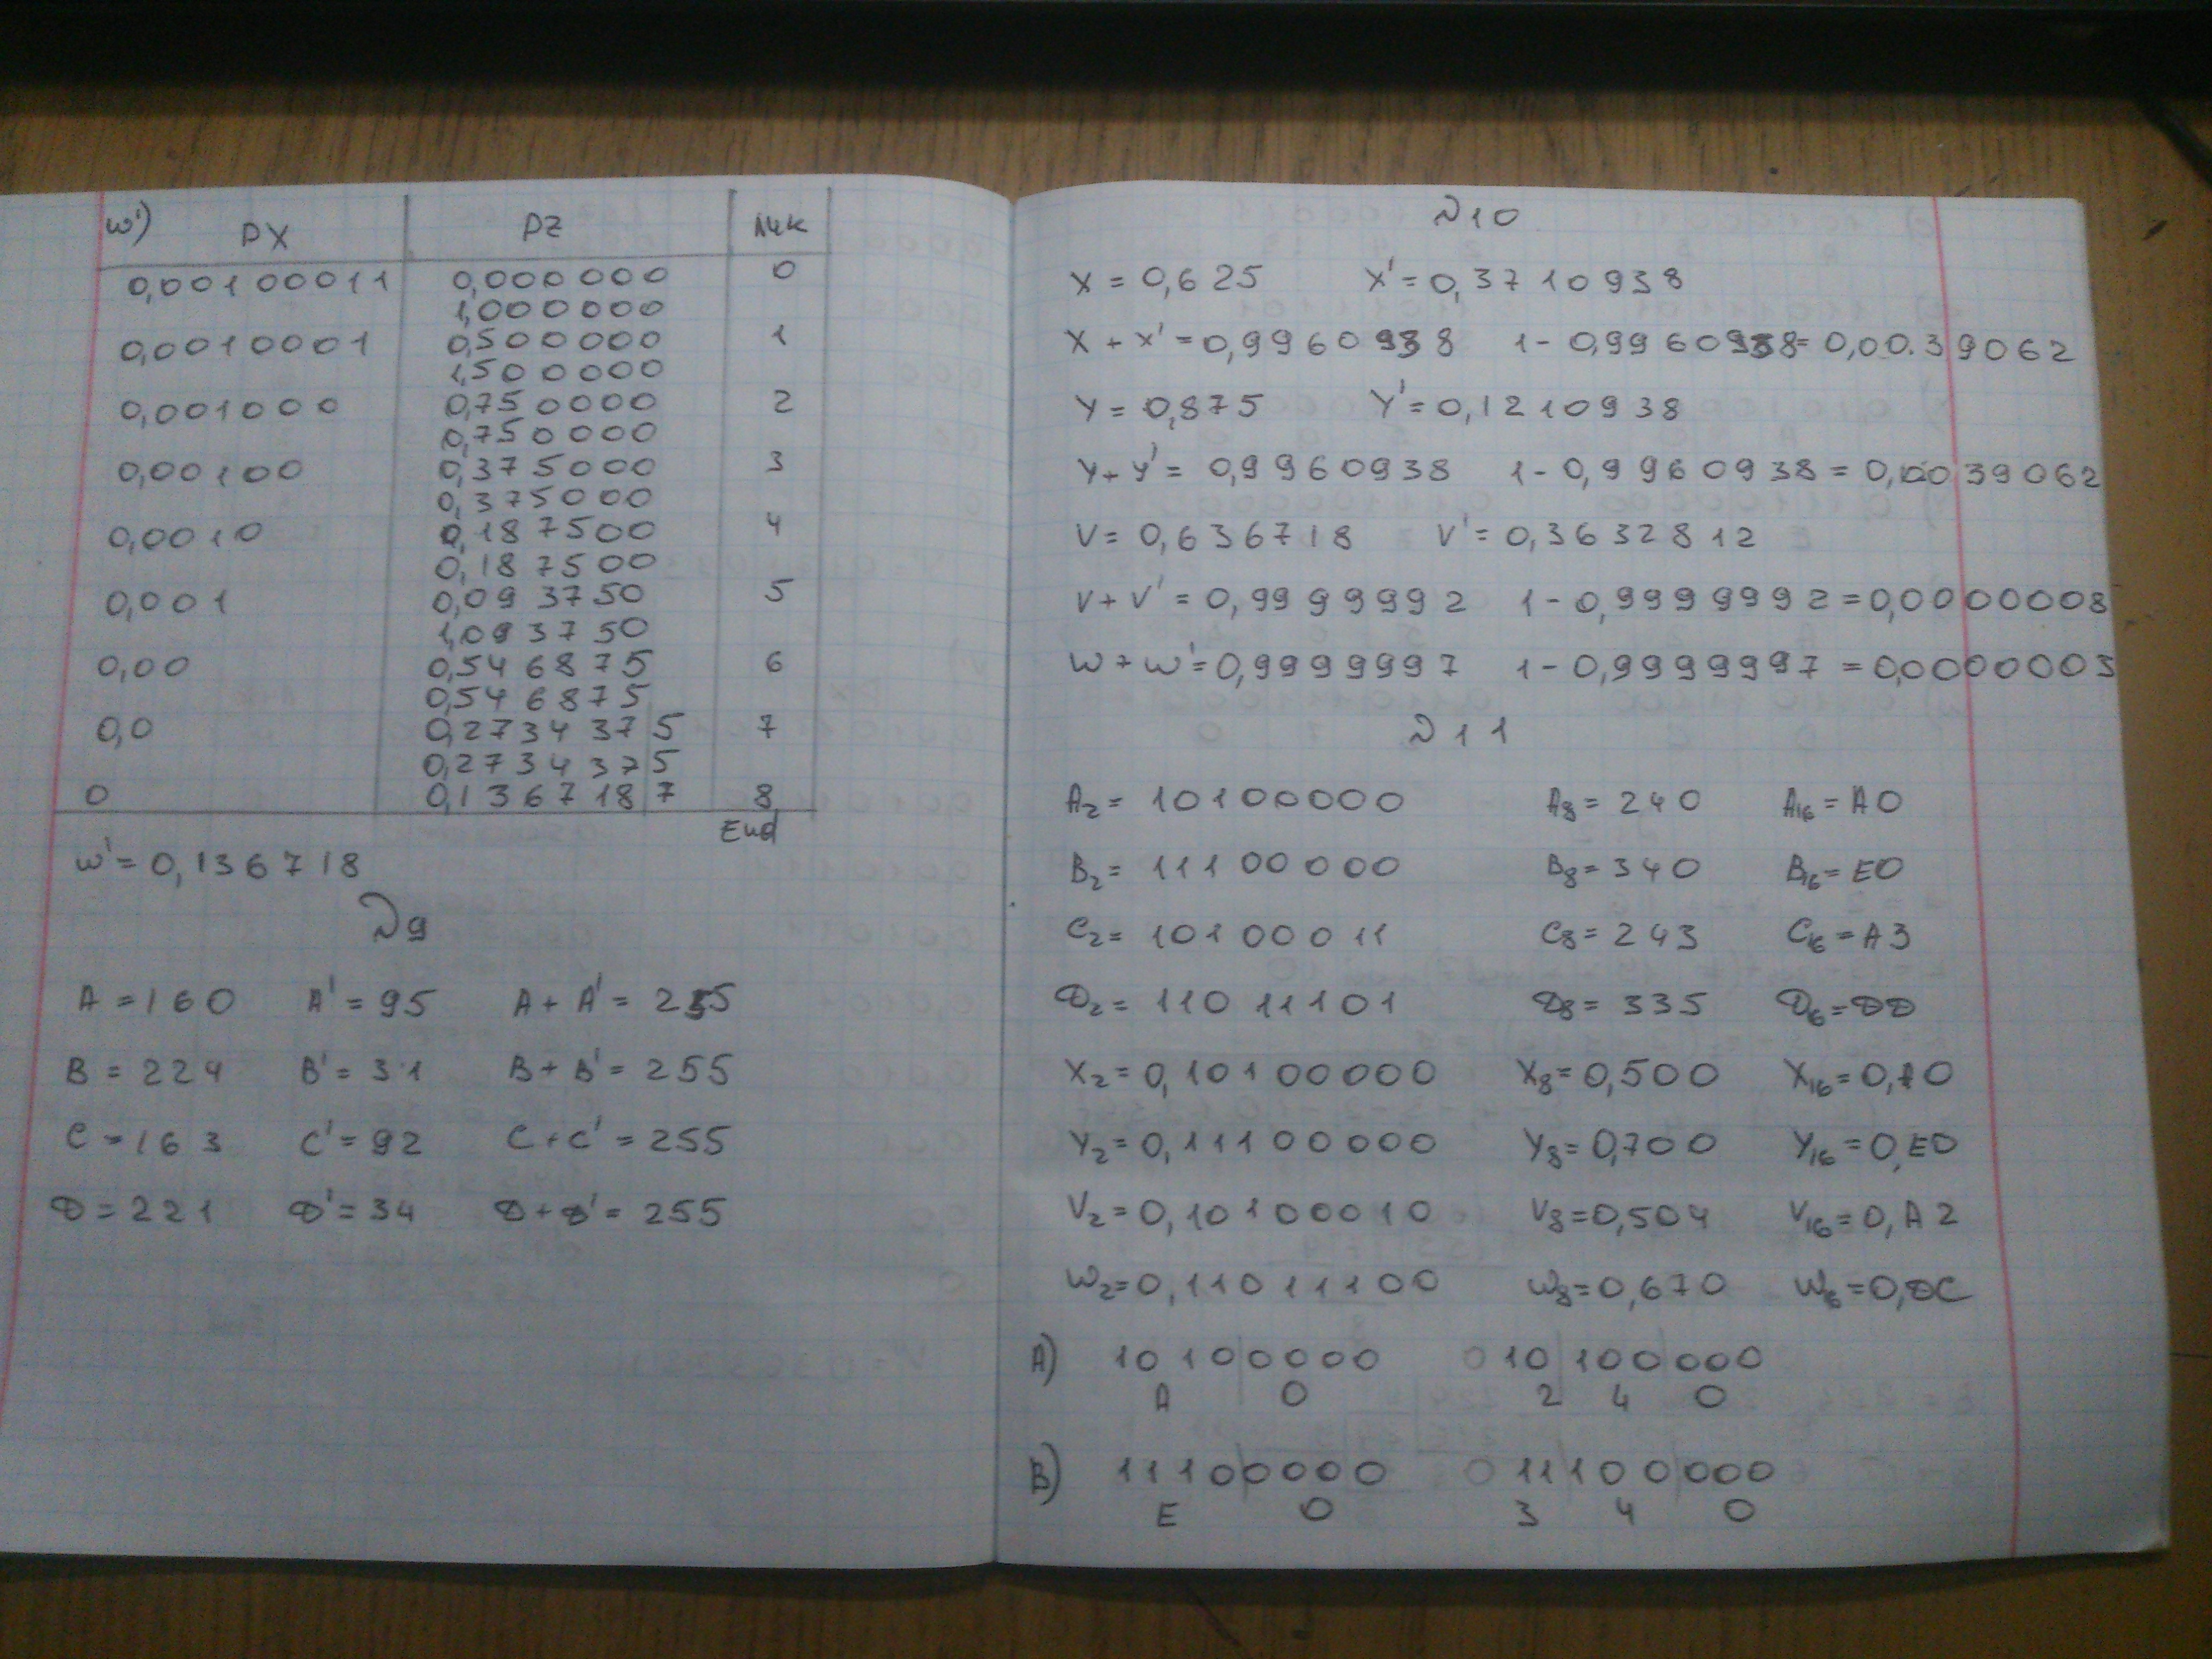 w') PX PZ Лчк
0,00100011 0,000000 0
1,000000
0,0010001 0,500000 1
1,500000
0,001000 0,750000 2
0,750000
0,00100 0,375000 3
0,375000
0,0010 0,187500 4
0,187500
0,001 0,093750 5
1,093750
0,00 0,546875 6
0,546875
0,0 0,2734375 7
0,2734375
0 0,1367187 8
End
w'= 0,136718
№9
A = 160 A' = 95 A + A' = 255
B = 224 B' = 31 B + B' = 255
C = 163 C' = 92 C + C' = 255
D = 221 D' = 34 D + D' = 255
№10
X = 0,625 X' = 0,3710938
X + X' = 0,9960938 1 - 0,9960938 = 0,0039062
Y = 0,875 Y' = 0,1210938
Y + Y' = 0,9960938 1 - 0,9960938 = 0,0039062
V = 0,636718 V' = 0,3632812
V + V' = 0,9999992 1 - 0,9999992 = 0,0000008
W + W' = 0,9999997 1 - 0,9999997 = 0,0000003
№11
A₂ = 10100000 A₈ = 240 A₁₆ = A0
B₂ = 11100000 B₈ = 340 B₁₆ = E0
C₂ = 10100011 C₈ = 243 C₁₆ = A3
D₂ = 11011101 D₈ = 335 D₁₆ = DD
X₂ = 0,10100000 X₈ = 0,500 X₁₆ = 0,A0
Y₂ = 0,11100000 Y₈ = 0,700 Y₁₆ = 0,E0
V₂ = 0,10100010 V₈ = 0,504 V₁₆ = 0,A2
W₂ = 0,11011100 W₈ = 0,670 W₁₆ = 0,DC
A) 10100000 010100000
A 0 2 4 0
B) 11100000 011100000
E 0 3 4 0